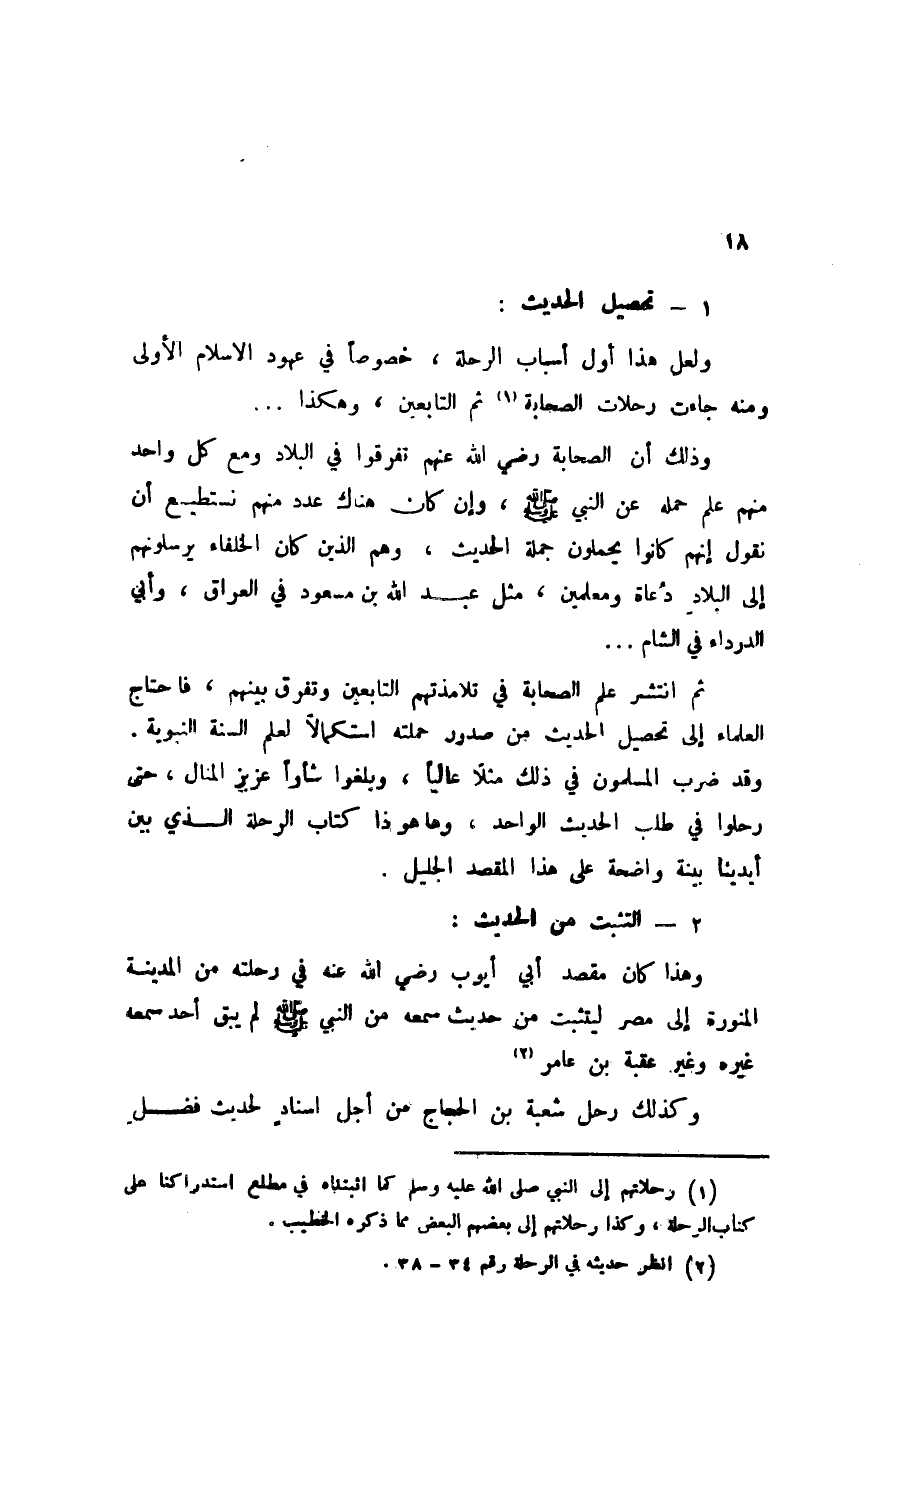 ١٨
١ – تحصيل الحديث :
ولعل هذا أول أسباب الرحلة ، خصوصاً في عهود الاسلام الأولى
ومنه جاءت رحلات الصحابة (١) ثم التابعين ، وهكذا ...
وذلك أن الصحابة رضي الله عنهم تفرقوا في البلاد ومع كل واحد
منهم علم حمله عن النبي ﷺ ، وإن كان هناك عدد منهم نستطيع أن
نقول إنهم كانوا يحملون جملة الحديث ، وهم الذين كان الخلفاء يرسلونهم
إلى البلاد دُعاة ومعلمين ، مثل عبد الله بن مسعود في العراق ، وأبي
الدرداء في الشام ...
ثم انتشر علم الصحابة في تلامذتهم التابعين وتفرق بينهم ، فاحتاج
العلماء إلى تحصيل الحديث من صدور حملته استكمالاً لعلم السنة النبوية .
وقد ضرب المسلمون في ذلك مثلًا عالياً ، وبلغوا شأواً عزيز المنال ، حتى
رحلوا في طلب الحديث الواحد ، وها هو ذا كتاب الرحلة الذي بين
أيدينا بينة واضحة على هذا المقصد الجليل .
٢ – التثبت من الحديث :
وهذا كان مقصد أبي أيوب رضي الله عنه في رحلته من المدينة
المنورة إلى مصر ليتثبت من حديث سمعه من النبي ﷺ لم يبق أحد سمعه
غيره وغير عقبة بن عامر (٢)
وكذلك رحل شعبة بن الحجاج من أجل اسنادٍ لحديث فضل
(١) رحلاتهم إلى النبي صلى الله عليه وسلم كما اثبتناه في مطلع استدراكنا على
كتاب الرحلة ، وكذا رحلاتهم إلى بعضهم البعض مما ذكره الخطيب .
(٢) انظر حديثه في الرحلة رقم ٣٤ – ٣٨ .